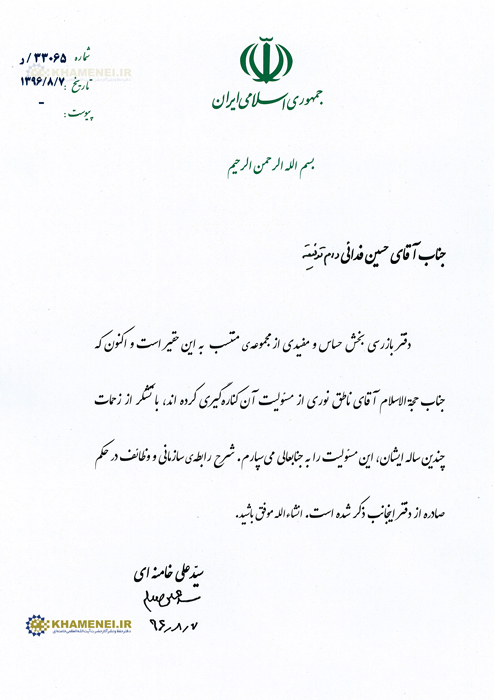 شماره ۳۳۰۶۵/د
KHAMENEI.IR
تاریخ: ۱۳۹۶/۸/۷
پیوست: -
جمهوری اسلامی ایران
بسم الله الرحمن الرحیم
جناب آقای حسین فدائی دام توفیقه
دفتر بازرسی بخش حساس و مفیدی از مجموعه‌ی منتسب به این حقیر است و اکنون که
جناب حجةالاسلام آقای ناطق نوری از مسئولیت آن کناره‌گیری کرده اند، با تشکر از زحمات
چندین ساله ایشان، این مسئولیت را به جنابعالی می‌سپارم. شرح رابطه‌ی سازمانی و وظائف در حکم
صادره از دفتر اینجانب ذکر شده است. انشاءالله موفق باشید.
سیّد علی خامنه ای
۹۶٫۸٫۷
KHAMENEI.IR